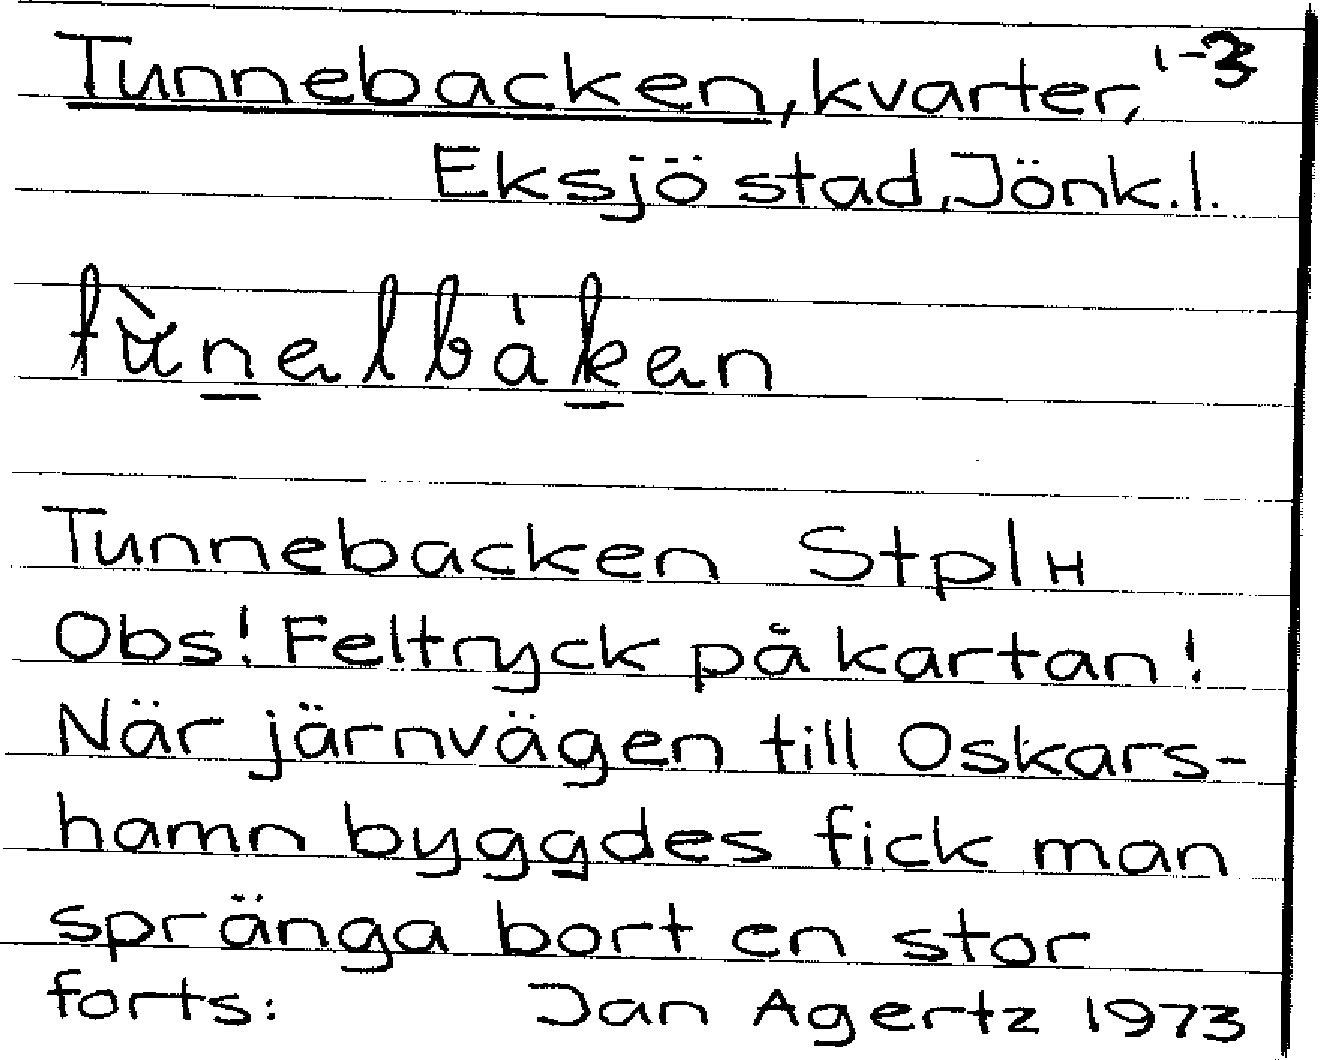 Tunnebacken, kvarter, 1-3
Eksjö stad, Jönk.l.
tùnalbákan
Tunnebacken StplH
Obs! Feltryck på kartan!
När järnvägen till Oskars-
hamn byggdes fick man
spränga bort en stor
forts: Jan Agertz 1973